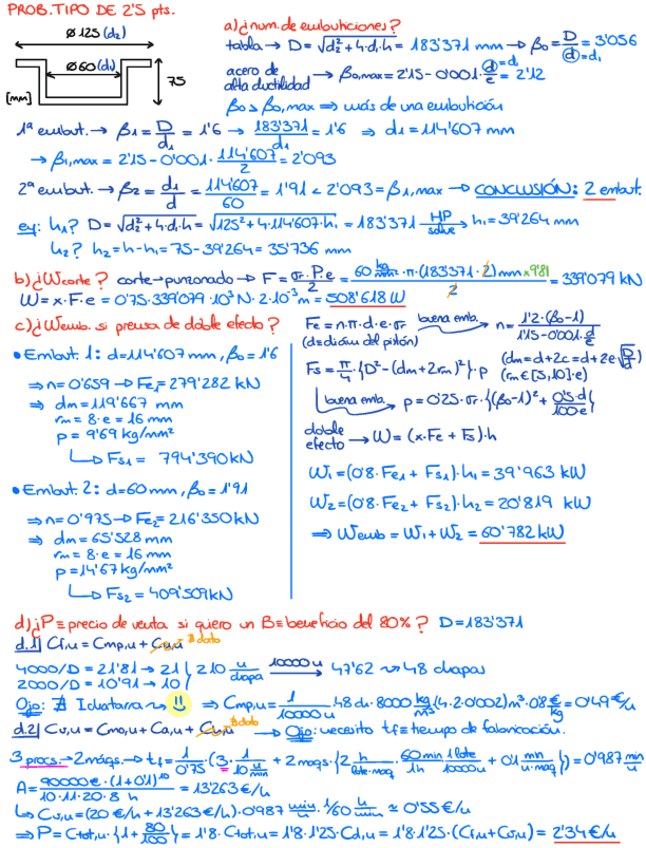 PROB. TIPO DE 2'5 pts.
Ø125 (d₂)
Ø60 (d₁)
75
[mm]
a) ¿núm. de embuticiones?
tabla → D = √(d₂² + 4·d₁·h) = 183'371 mm → β₀ = D/d = 3'056
d = d₁
acero de alta ductilidad → β₀,max = 2'15 - 0'001·d/e = 2'12
= d₁
β₀ > β₀,max ⇒ más de una embutición
1ª embut. → β₁ = D/d₁ = 1'6 → 183'371/d₁ = 1'6 ⇒ d₁ = 114'607 mm
→ β₁,max = 2'15 - 0'001·114'607/2 = 2'093
2ª embut. → β₂ = d₁/d = 114'607/60 = 1'91 < 2'093 = β₁,max → CONCLUSIÓN: 2 embut.
ej: h₁? D = √(d₂² + 4·d₁·h) = √(125² + 4·114'607·h₁) = 183'371 HP solve → h₁ = 39'264 mm
h₂? h₂ = h - h₁ = 75 - 39'264 = 35'736 mm
b) ¿Wcorte? corte → punzonado → F = σr·P·e/2 = 60 kg/mm²·π·(183'371·2) mm ×9'81/2 = 339'079 kN
W = x·F·e = 0'75·339'079·10³ N·2·10⁻³ m = 508'618 W
c) ¿Wemb. si prensa de doble efecto?
• Embut. 1: d = 114'607 mm, β₀ = 1'6
⇒ n = 0'659 → Fe₁ = 279'282 kN
⇒ dm = 119'667 mm
rm = 8·e = 16 mm
p = 9'69 kg/mm²
→ Fs₁ = 794'390 kN
• Embut. 2: d = 60 mm, β₀ = 1'91
⇒ n = 0'975 → Fe₂ = 216'350 kN
⇒ dm = 65'528 mm
rm = 8·e = 16 mm
p = 14'67 kg/mm²
→ Fs₂ = 409'509 kN
Fe = n·π·d·e·σr buena emb. → n = 1'2·(β₀-1)/(1'15 - 0'001·d/e)
(d = diám. del pistón)
Fs = π/4·{D² - (dm + 2rm)²}·p (dm = d + 2c = d + 2e√(D/d))
(rm ∈ [5,10]·e)
buena emb. → p = 0'25·σr·{(β₀-1)² + 0'5·d/(100·e)}
doble efecto → W = (x·Fe + Fs)·h
W₁ = (0'8·Fe₁ + Fs₁)·h₁ = 39'963 kW
W₂ = (0'8·Fe₂ + Fs₂)·h₂ = 20'819 kW
⇒ Wemb = W₁ + W₂ = 60'782 kW
d) ¿P ≡ precio de venta si quiero un B ≡ beneficio del 80%? D = 183'371
d.1) Cf,u = Cmp,u + Cu,u ∄ dato
4000/D = 21'81 → 21
2000/D = 10'91 → 10
210 u/chapa 10000 u → 47'62 ~ 48 chapas
Ojo: ∄ Ichatarra ~ ⇒ Cmp,u = 1/10000 u·48 ch·8000 kg/m³·(4·2·0'002) m³·0'8 €/kg = 0'49 €/u
d.2) Cv,u = Cmo,u + Ca,u + Cu,u ∄ dato → Ojo: necesito tf ≡ tiempo de fabricación.
3 procs. → 2 máqs. → tf = 1/0'75·(3·1/(10 u/min) + 2 maqs·{2 h/(lote·maq)·60 min/1h·1 lote/10000u + 0'1 min/(u·maq)}) = 0'987 min/u
A = 90000 €·(1+0'1)¹⁰/(10·11·20·8 h) = 13'263 €/h
→ Cv,u = (20 €/h + 13'263 €/h)·0'987 min/u·1/60 h/min ≈ 0'55 €/u
⇒ P = Ctot,u·{1 + 80/100} = 1'8·Ctot,u = 1'8·1'25·Cd,u = 1'8·1'25·(Cf,u + Cv,u) = 2'34 €/u